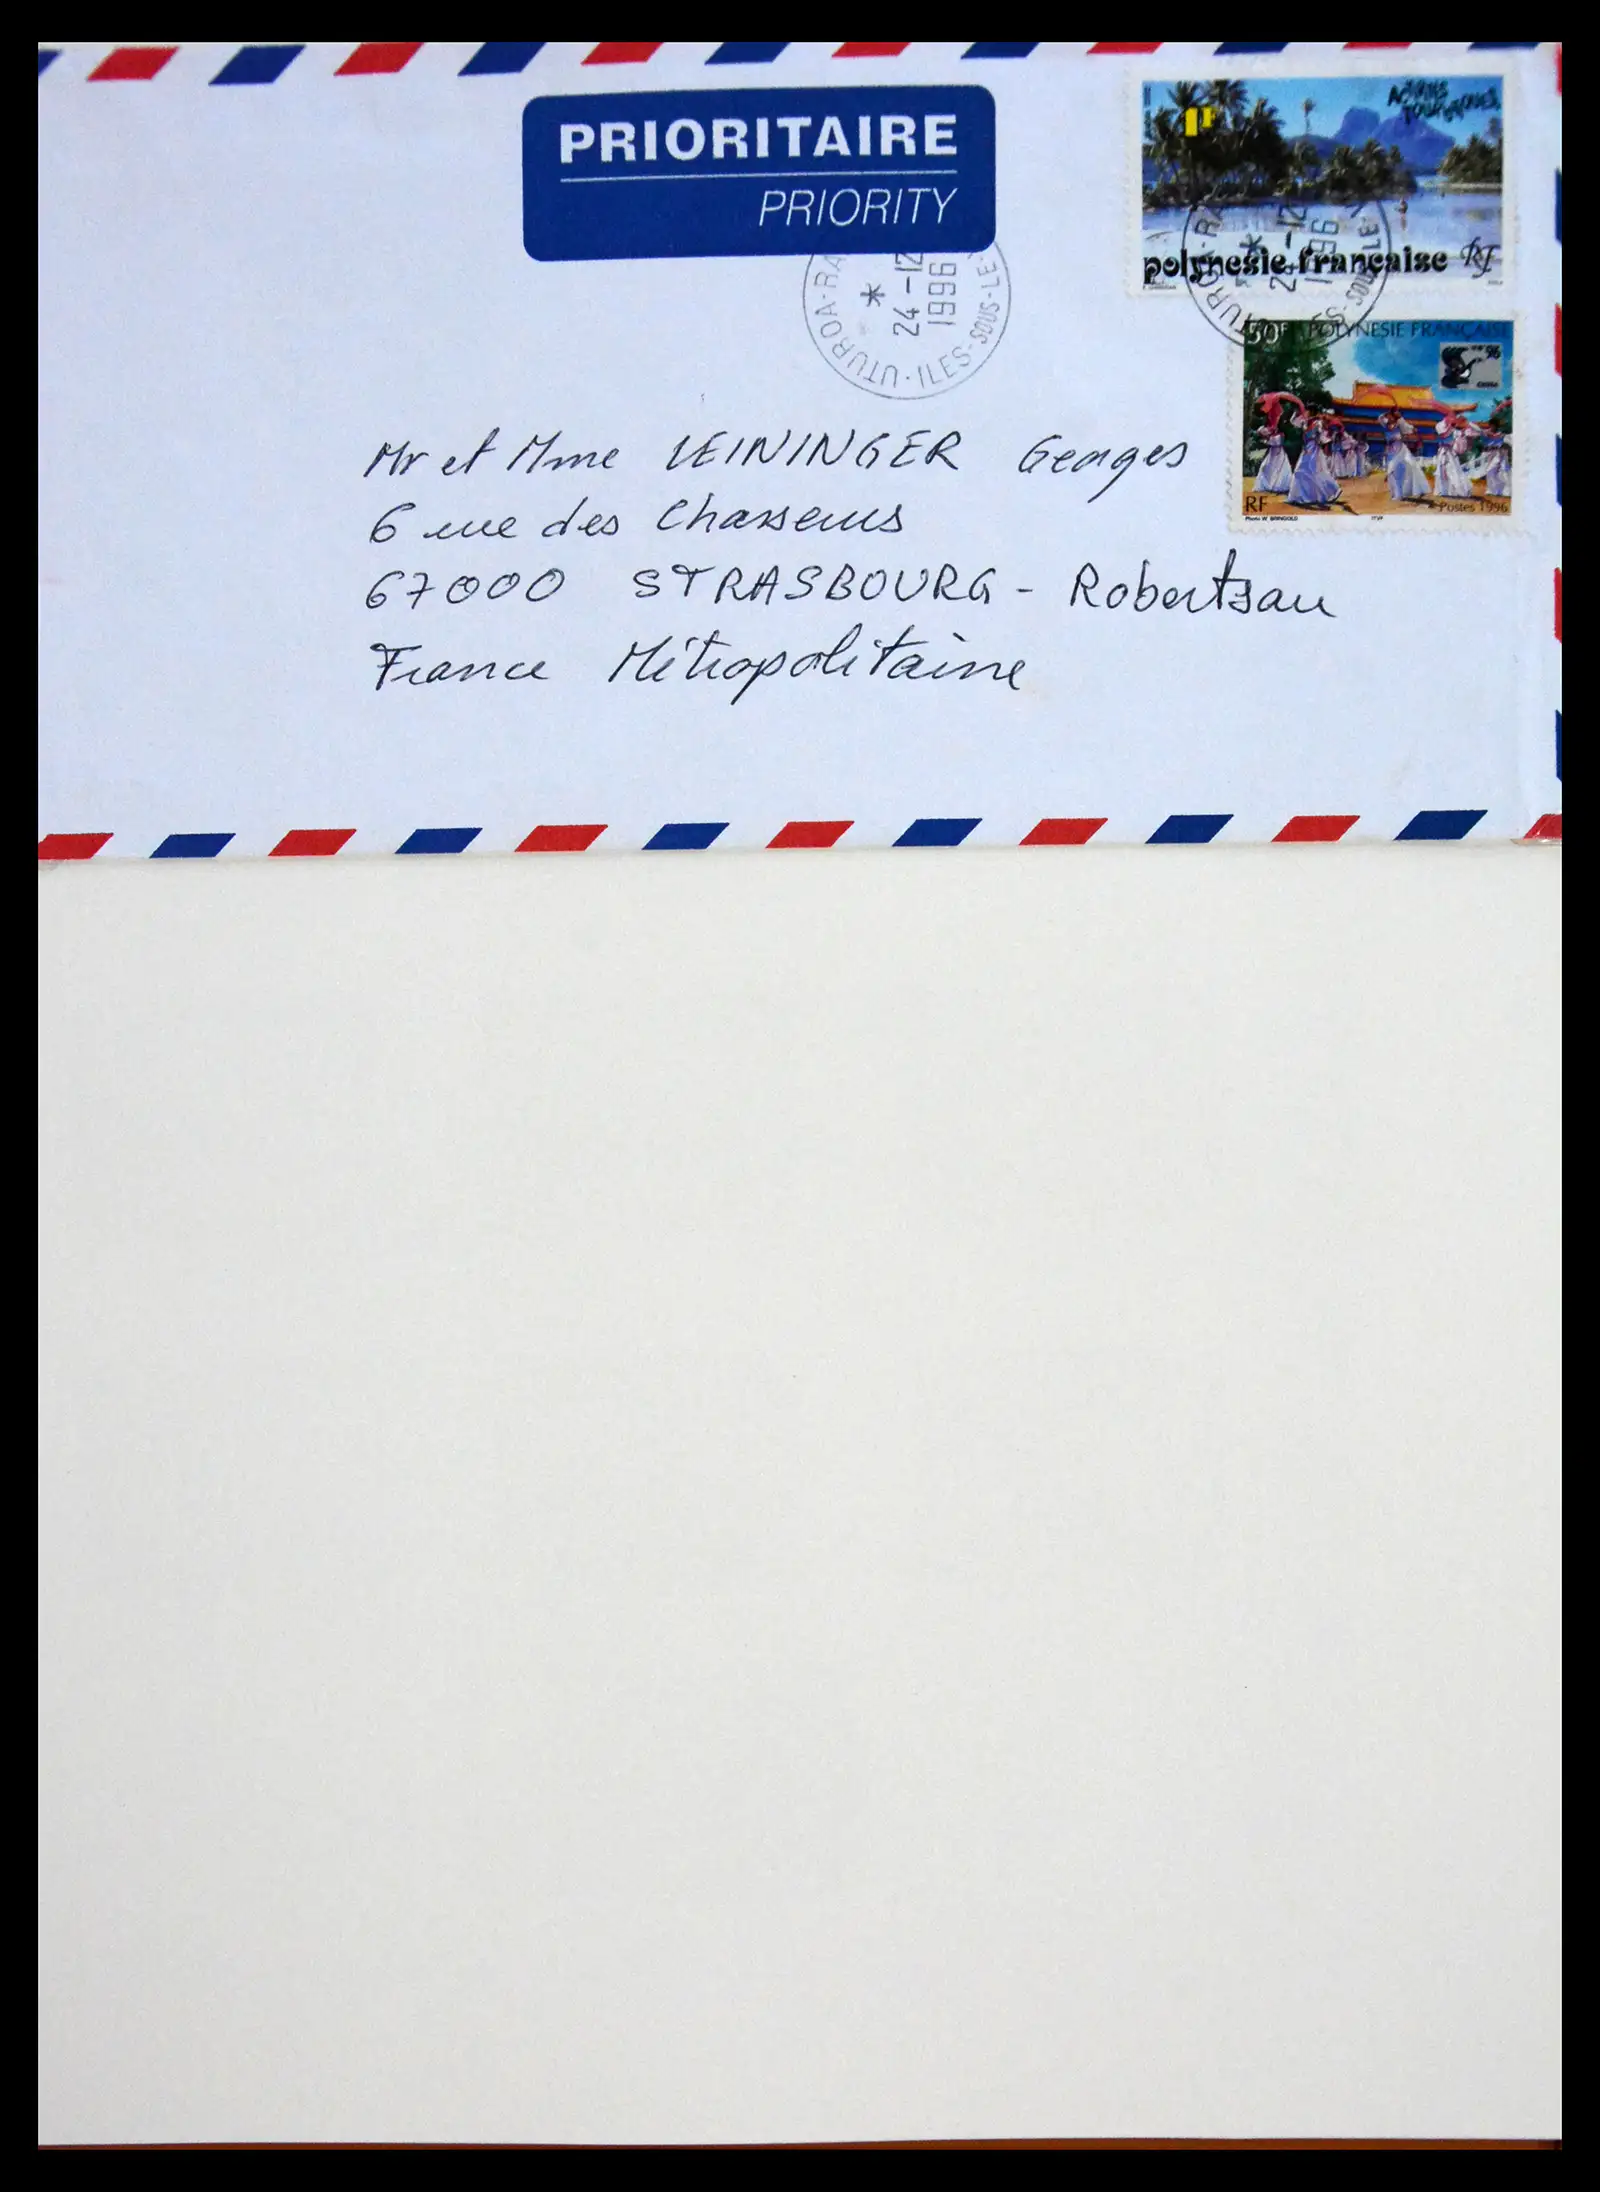 PRIORITAIRE
PRIORITY
1F
polynesie française RF
UTUROA-RA
*
24-12
1996
ILES-SOUS-LE-
UTUROA-RA
*
24-12
1996
ILES-SOUS-LE
50F POLYNESIE FRANÇAISE
96
RF
Postes 1996
Photo W. BRINGOLD ITVF
Mr et Mme LEININGER Georges
6 rue des Chasseurs
67000 STRASBOURG - Robertsau
France Métropolitaine